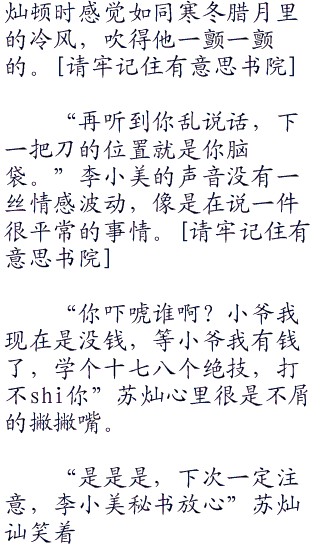 灿顿时感觉如同寒冬腊月里
的冷风，吹得他一颤一颤
的。[请牢记住有意思书院]
“再听到你乱说话，下
一把刀的位置就是你脑
袋。”李小美的声音没有一
丝情感波动，像是在说一件
很平常的事情。[请牢记住有
意思书院]
“你吓唬谁啊？小爷我
现在是没钱，等小爷我有钱
了，学个十七八个绝技，打
不shi你”苏灿心里很是不屑
的撇撇嘴。
“是是是，下次一定注
意，李小美秘书放心”苏灿
讪笑着